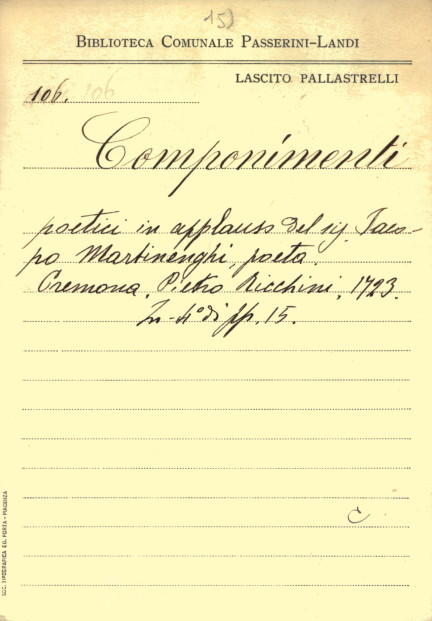 15)
BIBLIOTECA COMUNALE PASSERINI-LANDI
LASCITO PALLASTRELLI
106. 106
Componimenti
poetici in applauso del sig. Jaco-
po Martinenghi, poeta.
Cremona, Pietro Ricchini, 1723.
In-4° di pp. 15.
C
SOC. TIPOGRAFICA ED. PORTA - PIACENZA